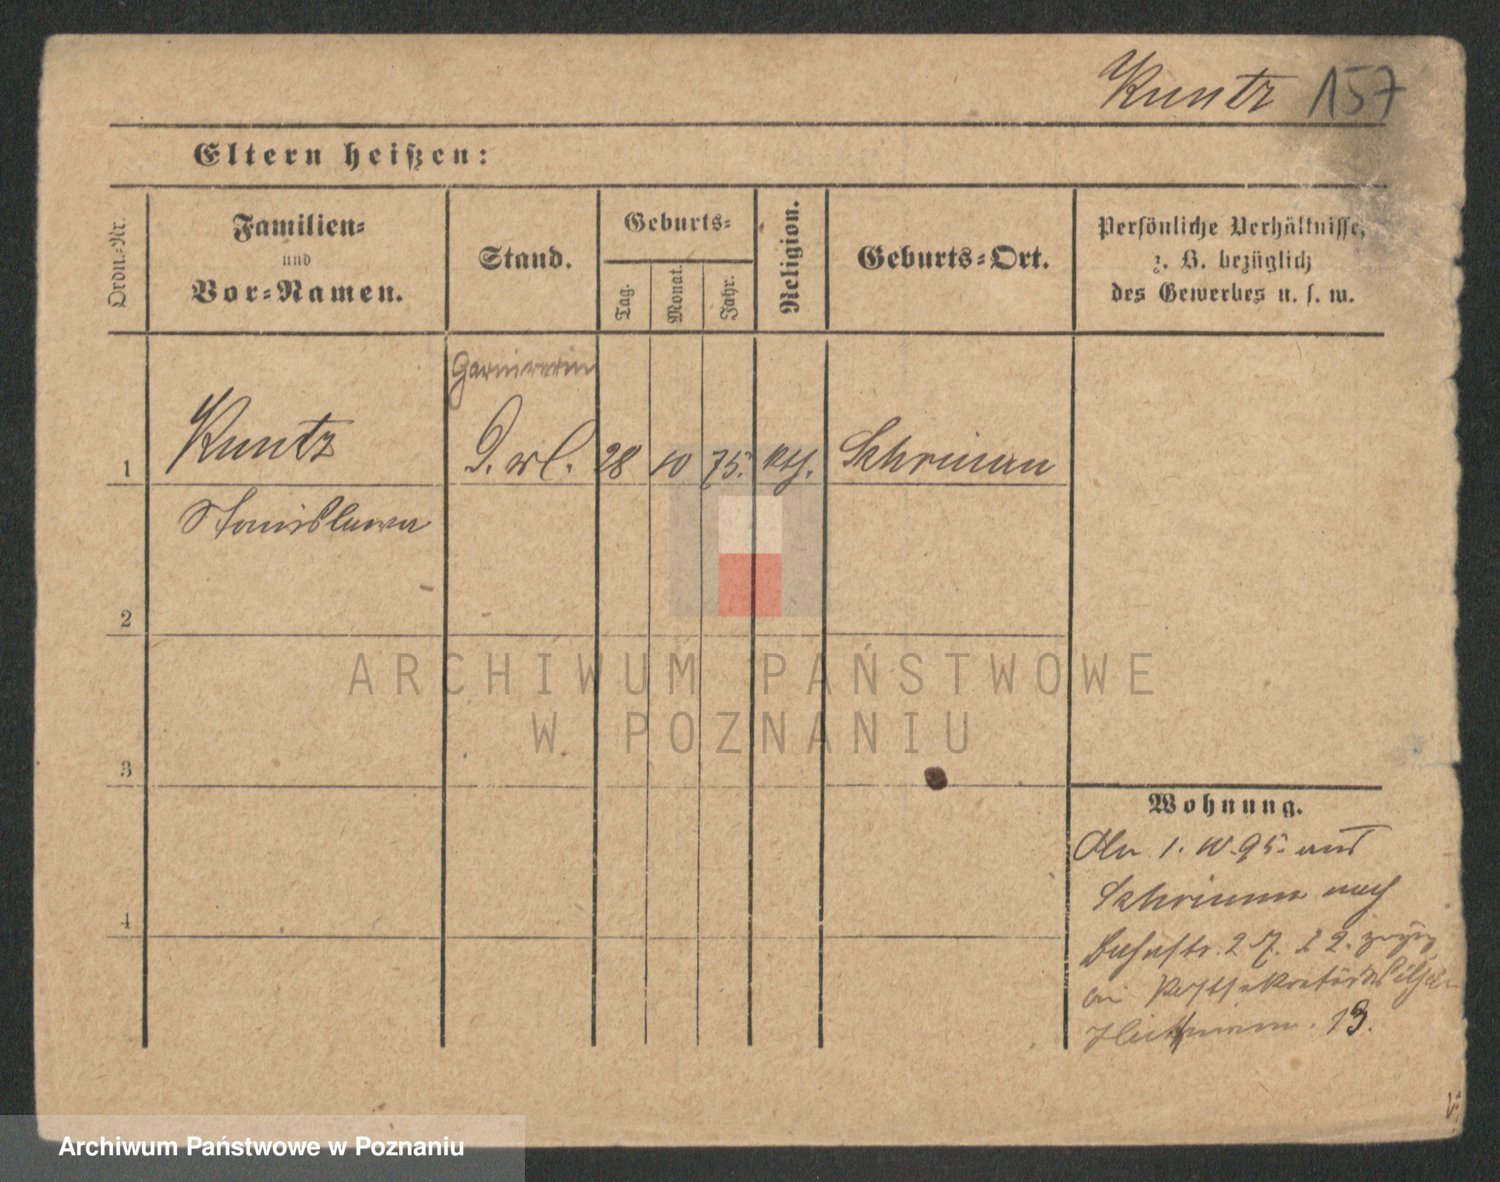 Kuntz 157
Eltern heißen:
Ordn.-Nr.
Familien-
und
Vor-Namen.
Stand.
Geburts-
Tag.
Monat.
Jahr.
Religion.
Geburts-Ort.
Persönliche Verhältnisse,
z. B. bezüglich
des Gewerbes u. s. w.
Garniererin
1 Kuntz 28 10 75. kth. Schrimm
Stanislawa
2
3
4
Wohnung.
1. 10. 95. aus
Schrimm nach
2
13.
ARCHIWUM PAŃSTWOWE
W POZNANIU
Archiwum Państwowe w Poznaniu